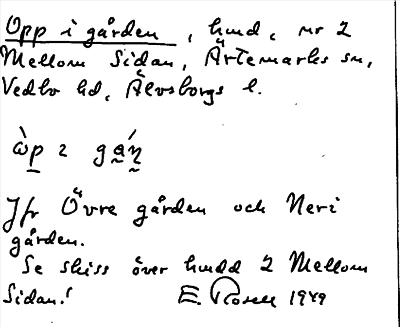 Opp i gården, hmd, nr 2
Mellom Sidan, Ärtemarks sn,
Vedbo hd, Älvsborgs l.
Jfr Övre gården och Neri
gården.
Se skiss över hmdd 2 Mellom
Sidan!
E. Rosell 1949